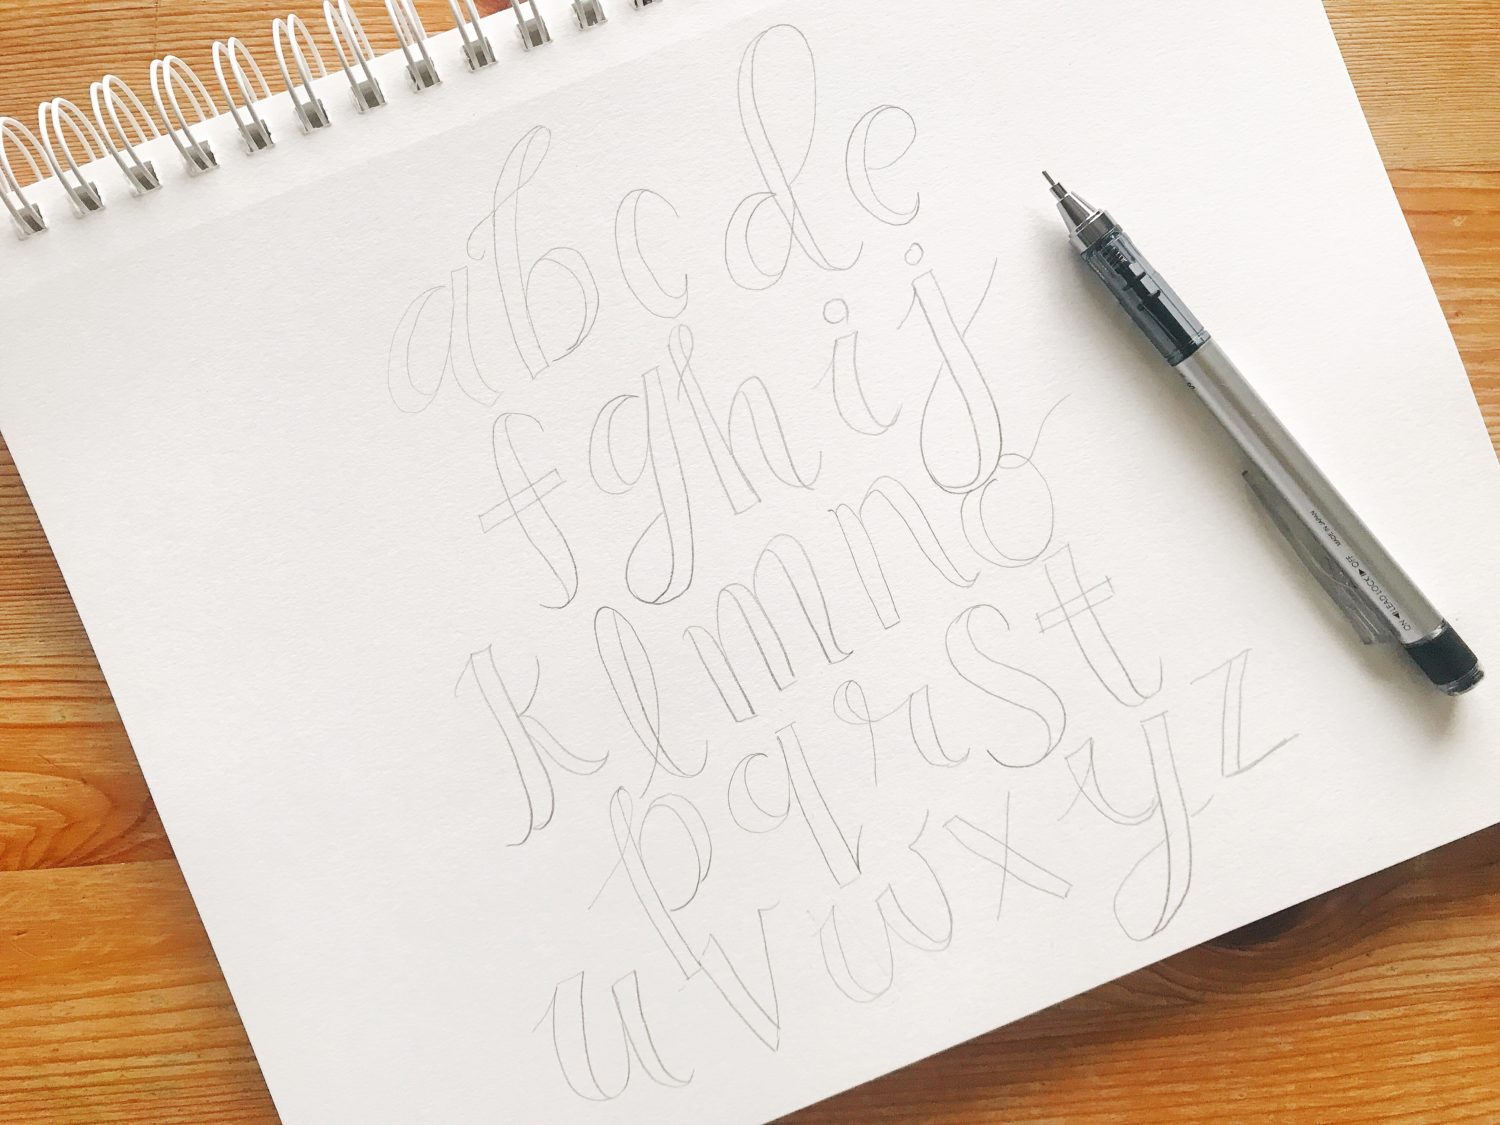 a b c d e
f g h i j
k l m n o
p q r s t
u v w x y z
ON ◄ LEAD LOCK ► OFF MADE IN JAPAN